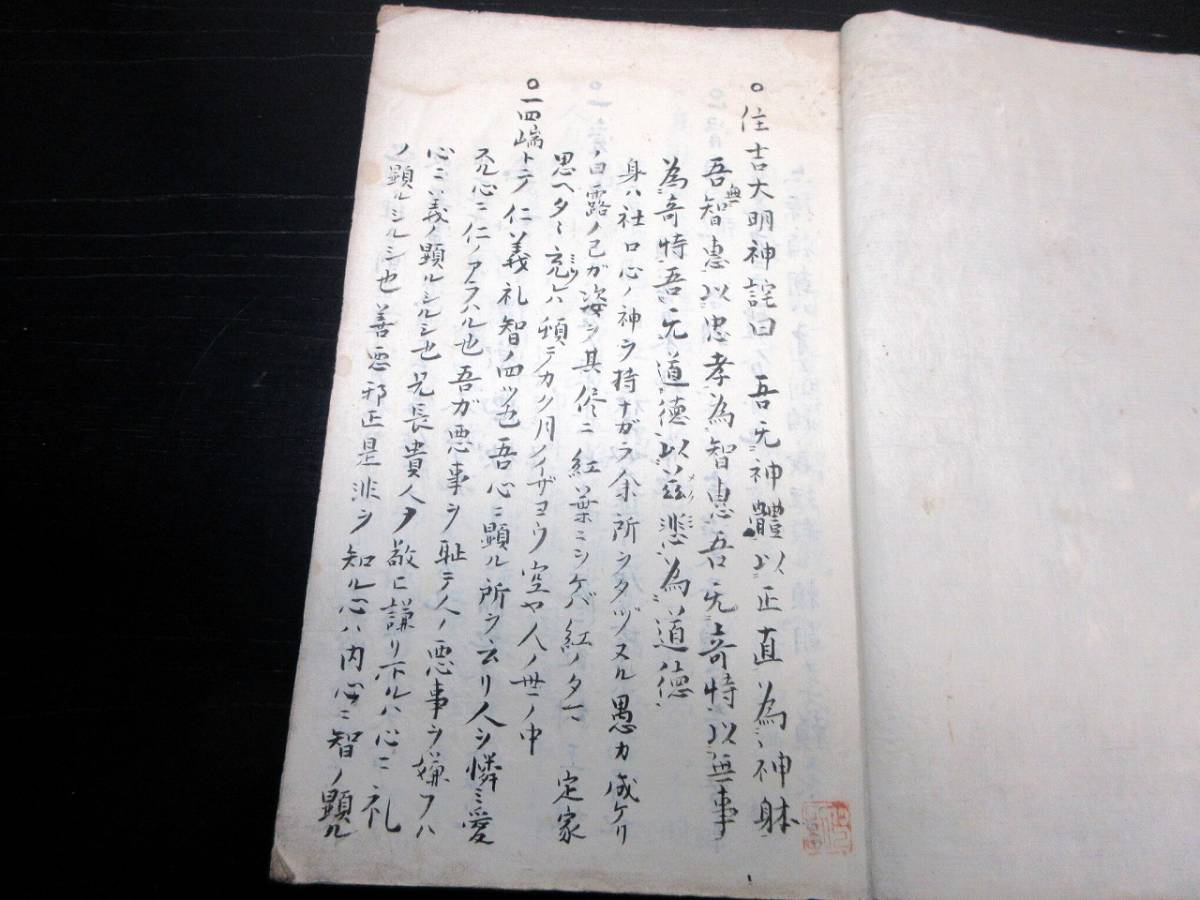 ○住吉大明神詫曰 吾无神體以正直為神躰
吾無智恵以忠孝為智恵吾无奇特以無事
為奇特吾无道徳以慈悲為道徳
身ハ社ロ心ノ神ヲ持ナガラ余所ヲタヅヌル愚カ成ケリ
ノ白露ノ己が姿ヲ其侭ニ紅葉ニヲケバ紅ノタマ 定家
思ヘタヾ充レハ頓テカク月ノイザヨウ空ヤ人ノ世ノ中
○一四端トテ仁義礼智ノ四ツ也吾心ニ顕ル所ヲ云リ人ヲ憐ミ愛
心ニ仁ノアラハル也吾ガ悪事ヲ耻テ人ノ悪事ヲ嫌フハ
心ニ義ノ顕ルシルシ也兄長貴人ヲ敬ヒ謙リ下ルハ心ニ礼
ノ顕ルシルシ也善悪邪正是非ヲ知ル心ハ内心ニ智ノ顕ル